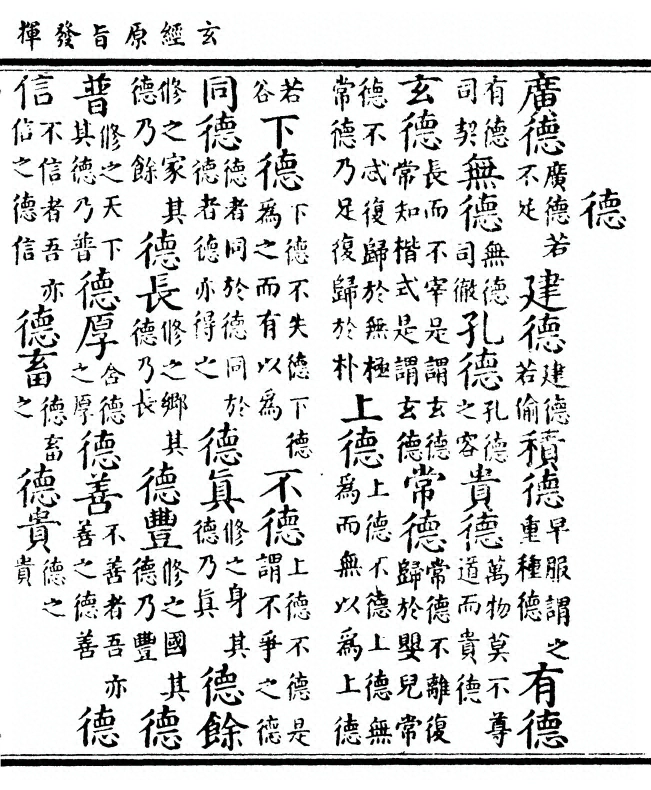 玄經原旨發揮
德
廣德廣德若不足建德建德若偷積德早服謂之重種德有德
有德司契無德無德司徹孔德孔德之容貴德萬物莫不尊道而貴德
玄德長而不宰是謂玄德常知楷式是謂玄德常德常德不離復歸於嬰兒常
德不忒復歸於無極常德乃足復歸於朴上德上德不德上德無爲而無以爲上德
若谷下德下德不失德下德爲之而有以爲不德上德不德是謂不爭之德
同德德者同於德同於德者德亦得之德眞修之身其德乃眞德餘
修之家其德乃餘德長修之鄉其德乃長德豐修之國其德乃豐德
普修之天下其德乃普德厚含德之厚德善不善者吾亦善之德善德
信不信者吾亦信之德信德畜德畜之德貴德之貴